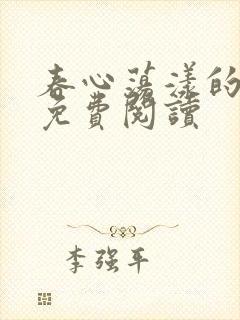 春心荡漾的
免費閱讀
李强平